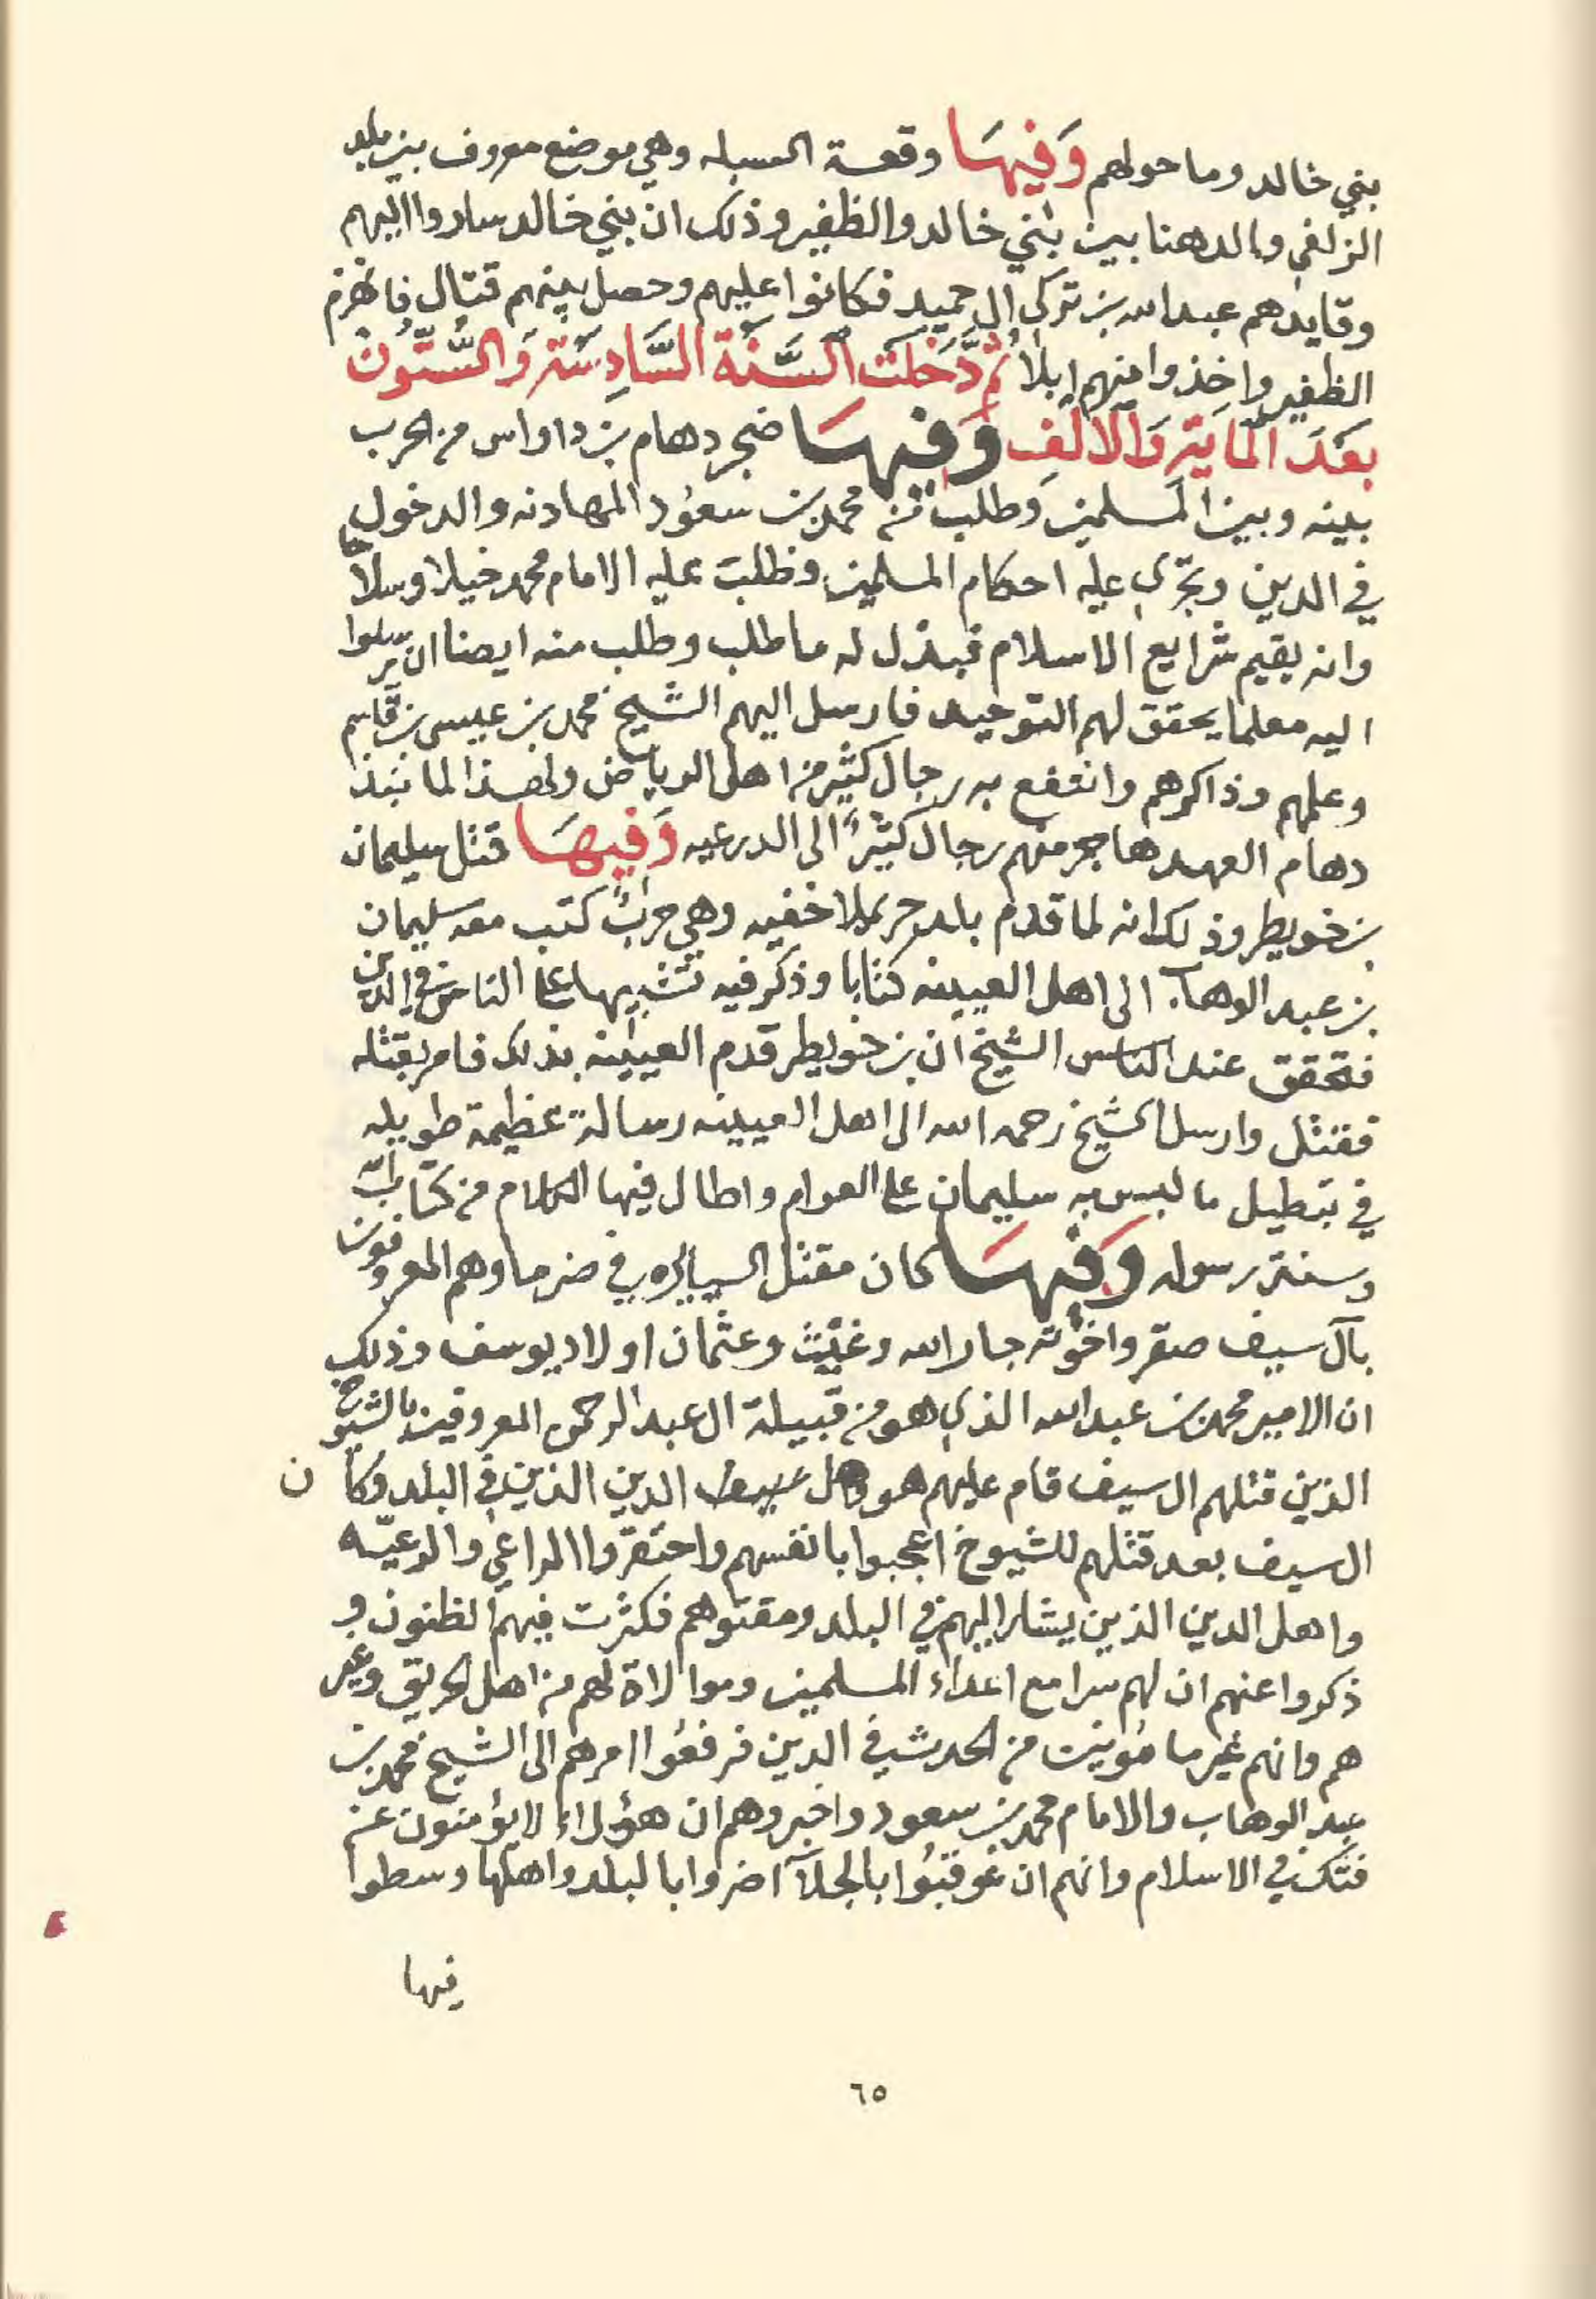 بني خالد وما حولهم وَفِيهَا وقعة السبله وهي موضع معروف بين بلد
الزلفي والدهنا بين بني خالد والظفير وذلك ان بني خالد ساروا اليهم
وقايدهم عبدالله بن تركي ال حميد فكانوا عليهم وحصل بينهم قتال فانهزم
الظفير واخذوا منهم ابلاً ثمّ دَخَلَت السَّنَة السَّادِسَة وَالسُّتّونْ
بعَدَ الماية وَالالف وَفيهَا ضجر دهام بن داواس من الحرب
بينه وبين المسلمين وطلب من محمد بن سعوُد المهادنه والدخول
في الدين وتجرى عليه احكام المسلمين وطلبَ عليه الامام محمد خيلا وسلاحا
وانه يقيم شرايع الاسلام فبذل له ما طلب وطلب منه ايضا ان يرسلوا
اليه معلما يحقق لهم التوحيد فارسل اليهم الشيخ محمد بن عيسى بن قاسم
وعلمهم وذاكرهم وانتفع به رجال كثير من اهل الرياض ولهذا لما نبذ
دهام العهد هاجر منهم رجال كثيرٌ الى الدرعيه وَفيهَا قتل سليمان
بن خويطر وذلك انه لما قدم بلد حريملا خفيه وهي حربٌ كتب معه سليمان
بن عبد الوهاب الى اهل العيينه كتابا وذكر فيه تشبيها على الناس في الدين
فتحقق عند الناس الشيخ ان بن خويطر قدم العيينه بذلك فامر بقتله
فقتل وارسل الشيخ رحمه الله الى اهل العيينه رسالة عظيمة طويله
في تبطيل ما لبس به سليمان على العوام واطال فيها الكلام من كتاب الله
وسنة رسوله وَفيهَا كان مقتل السيايره في ضرما وهم المعروفون
بآل سيف صقر واخوته جار الله وغيث وعثمان اولاد يوسف وذلك
ان الامير محمد بن عبدالله الذي هو من قبيلة ال عبد الرحمن المعروفين بالشيوخ
الذين قتلهم ال سيف قام عليهم هو الدين الذين في البلد وكان
ال سيف بعد قتلهم للشيوخ اعجبوا بانفسهم واحتقروا الراعي والرعيّه
واهل الدين الذين يشار اليهم في البلد ومقتوهم فكثرت فيهم الظنون و
ذكروا عنهم ان لهم سرا مع اعداء المسلمين وموالاة لهم من اهل الحريق وغير
هم وانهم غير مامُونين من الحدث في الدين فرفعُوا امرهم الى الشيخ محمد بن
عبد الوهاب والامام محمد بن سعود واخبروهم ان هؤلاء لا يؤمنون عن
فتك في الاسلام وانهم ان عوقبُوا بالجلآ اضروا بالبلد واهلها وسطوا
فيها
٦٥